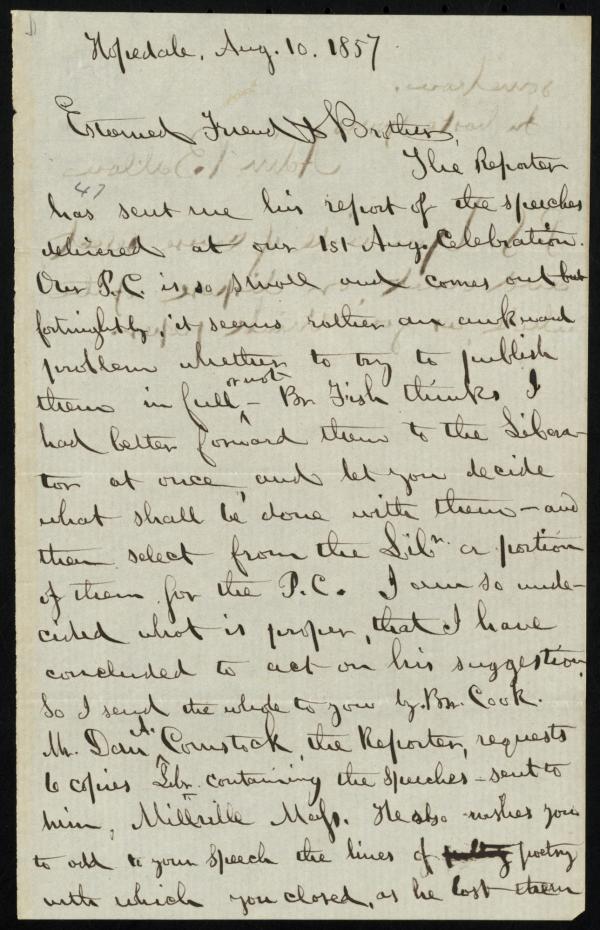 Hopedale, Aug. 10. 1857
Esteemed Friend & Brother,
The Reporter
47
has sent me his report of the speeches
delivered at our 1st Aug. Celebration.
Our P.C. is so small and comes out but
fortnightly, it seems rather an awkward
problem whether to try to publish
them in full or not – Br. Fish thinks I
had better forward them to the Libera-
tor at once, and let you decide
what shall be done with them – and
then select from the Libr. a portion
of them for the P.C. I am so unde-
cided what is proper, that I have
concluded to act on his suggestion.
So I send the whole to you by Br. Cook.
Mr. Dan A. Comstock, the Reporter, requests
6 copies Libr. containing the speeches – sent to
him, Millville Mass. He also wishes you
to add to your speech the lines of poetry
with which you closed, as he lost them